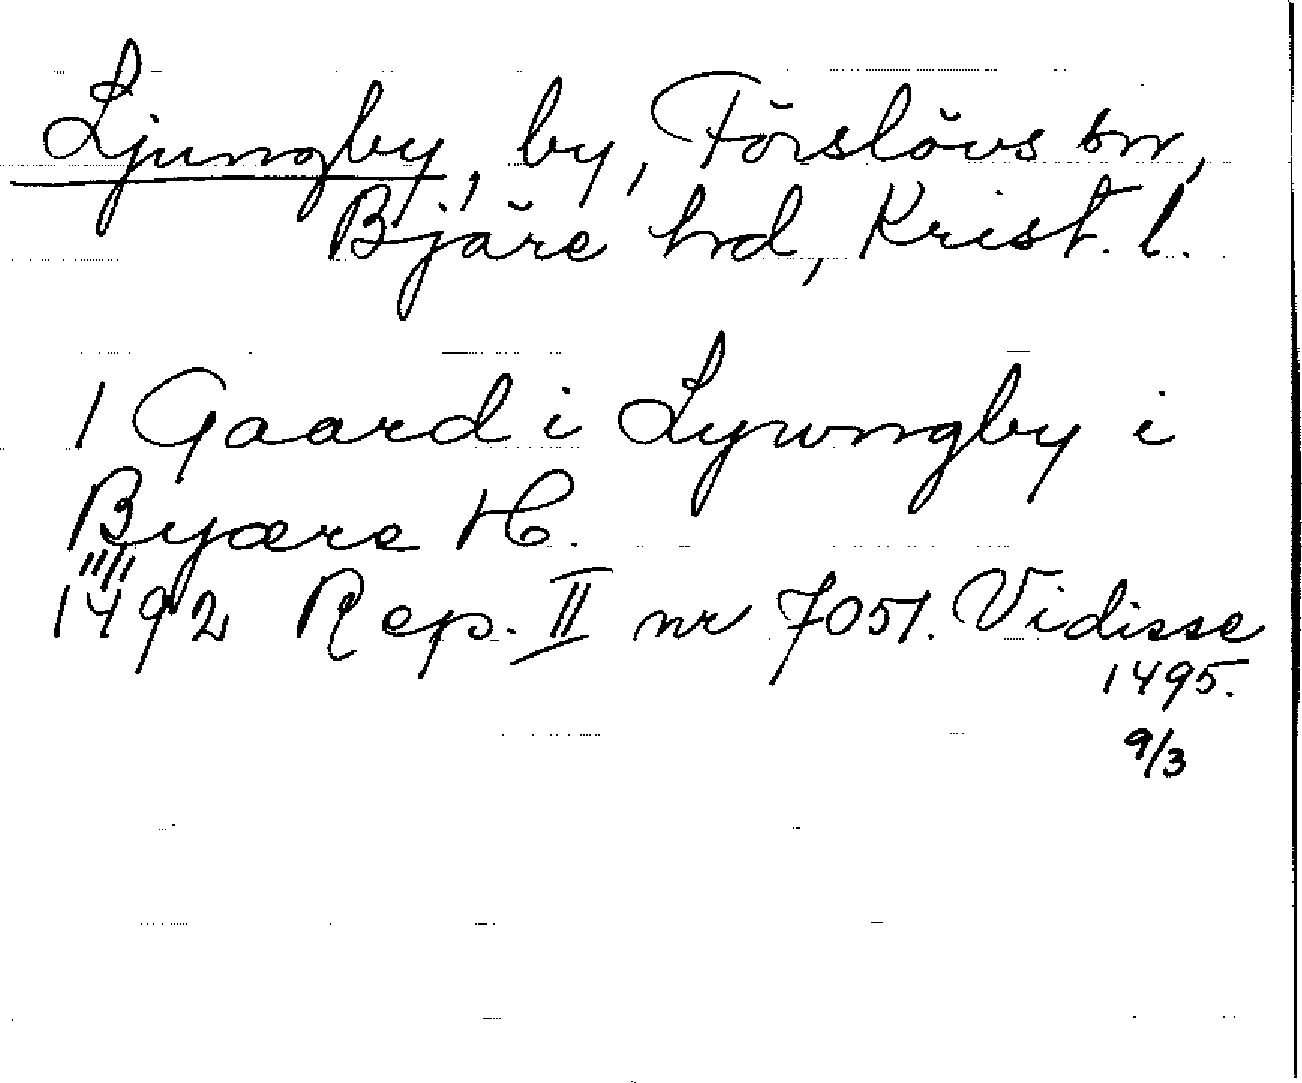 Ljungby, by, Förslövs sn,
Bjäre hrd, Krist. l.
1 Gaard i Lywngby i
Byære H.
11/1
1492 Rep. II nr 7051. Vidisse
1495.
9/3